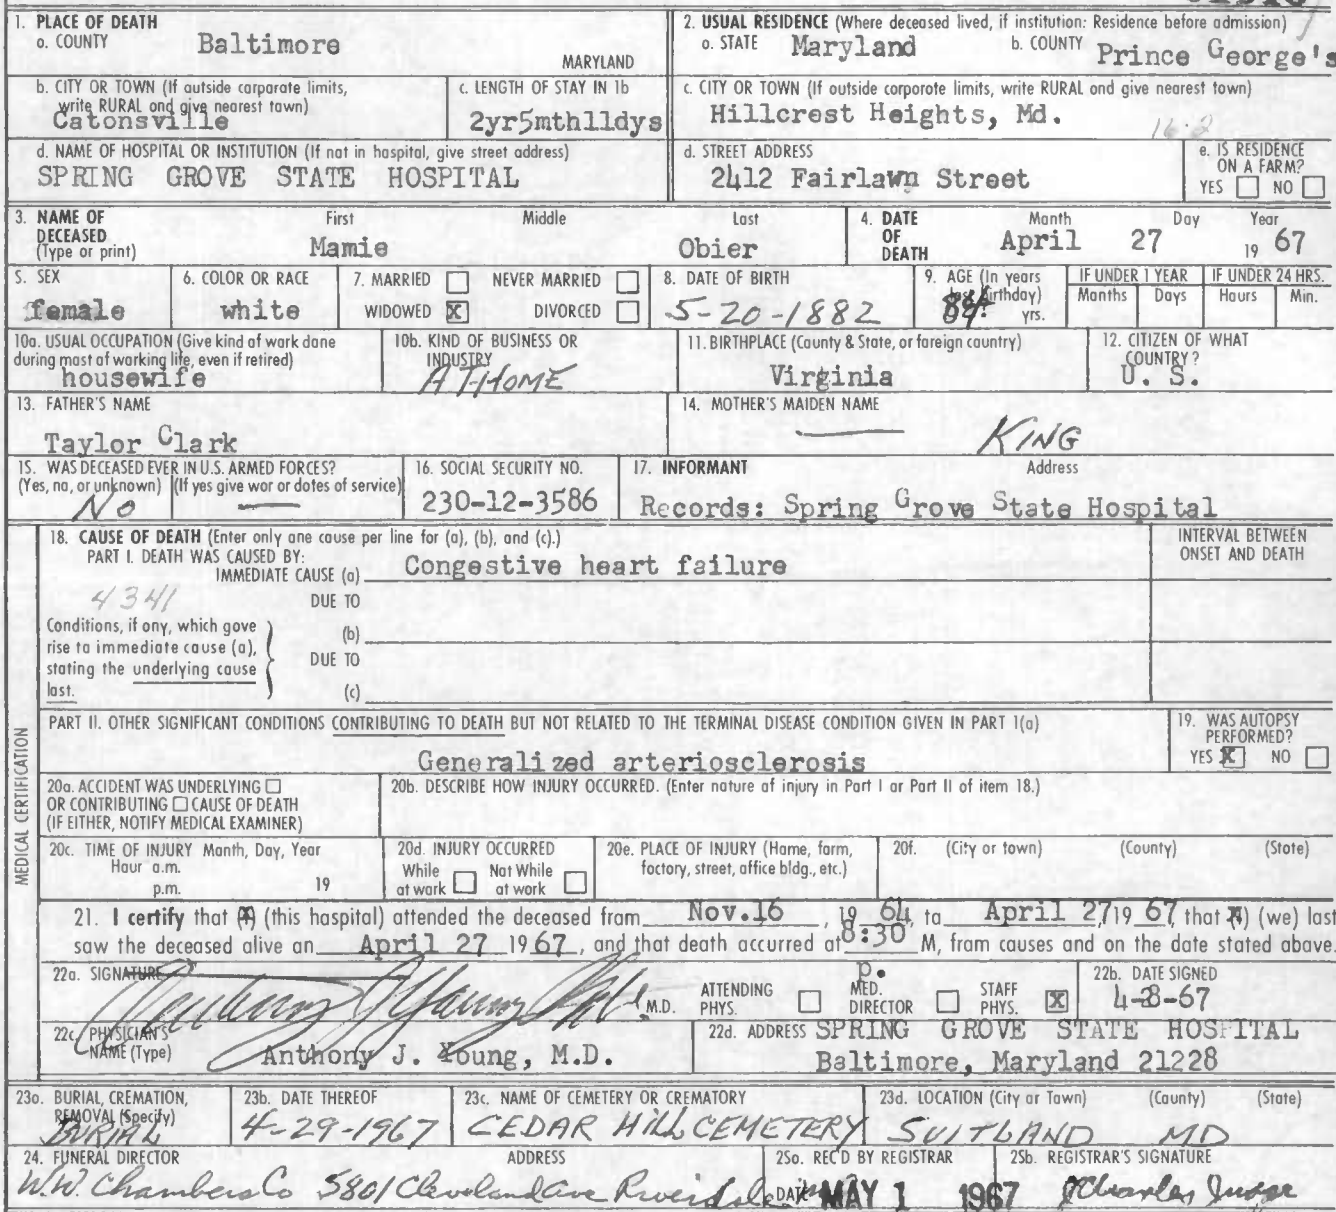 1. PLACE OF DEATH
a. COUNTY Baltimore MARYLAND
2. USUAL RESIDENCE (Where deceased lived, if institution: Residence before admission)
a. STATE Maryland b. COUNTY Prince George's
b. CITY OR TOWN (If outside corporate limits, write RURAL and give nearest town)
Catonsville
c. LENGTH OF STAY IN 1b
2yr5mth11dys
c. CITY OR TOWN (If outside corporate limits, write RURAL and give nearest town)
Hillcrest Heights, Md.
16-2
d. NAME OF HOSPITAL OR INSTITUTION (If not in hospital, give street address)
SPRING GROVE STATE HOSPITAL
d. STREET ADDRESS
2412 Fairlawn Street
e. IS RESIDENCE ON A FARM?
YES NO
3. NAME OF DECEASED (Type or print)
First Middle Last
Mamie Obier
4. DATE OF DEATH
Month Day Year
April 27 19 67
5. SEX
female
6. COLOR OR RACE
white
7. MARRIED NEVER MARRIED
WIDOWED X DIVORCED
8. DATE OF BIRTH
5-20-1882
9. AGE (In years last birthday)
84 yrs.
IF UNDER 1 YEAR
Months Days
IF UNDER 24 HRS.
Hours Min.
10a. USUAL OCCUPATION (Give kind of work done during most of working life, even if retired)
housewife
10b. KIND OF BUSINESS OR INDUSTRY
AT HOME
11. BIRTHPLACE (County & State, or foreign country)
Virginia
12. CITIZEN OF WHAT COUNTRY?
U. S.
13. FATHER'S NAME
Taylor Clark
14. MOTHER'S MAIDEN NAME
KING
15. WAS DECEASED EVER IN U.S. ARMED FORCES?
(Yes, no, or unknown) (If yes give war or dates of service)
NO —
16. SOCIAL SECURITY NO.
230-12-3586
17. INFORMANT Address
Records: Spring Grove State Hospital
18. CAUSE OF DEATH (Enter only one cause per line for (a), (b), and (c).)
PART I. DEATH WAS CAUSED BY:
IMMEDIATE CAUSE (a) Congestive heart failure
INTERVAL BETWEEN ONSET AND DEATH
4341
DUE TO
Conditions, if any, which gave rise to immediate cause (a), stating the underlying cause last.
(b)
DUE TO
(c)
PART II. OTHER SIGNIFICANT CONDITIONS CONTRIBUTING TO DEATH BUT NOT RELATED TO THE TERMINAL DISEASE CONDITION GIVEN IN PART I(a)
Generalized arteriosclerosis
19. WAS AUTOPSY PERFORMED?
YES X NO
MEDICAL CERTIFICATION
20a. ACCIDENT WAS UNDERLYING OR CONTRIBUTING CAUSE OF DEATH (IF EITHER, NOTIFY MEDICAL EXAMINER)
20b. DESCRIBE HOW INJURY OCCURRED. (Enter nature of injury in Part I or Part II of item 18.)
20c. TIME OF INJURY Month, Day, Year
Hour a.m.
p.m. 19
20d. INJURY OCCURRED
While at work Not While at work
20e. PLACE OF INJURY (Home, farm, factory, street, office bldg., etc.)
20f. (City or town) (County) (State)
21. I certify that (I) (this hospital) attended the deceased from Nov.16, 19 64, to April 27 19 67 that (I) (we) last
saw the deceased alive on April 27 19 67, and that death occurred at 8:30 M, from causes and on the date stated above.
p.
22a. SIGNATURE
M.D.
ATTENDING PHYS. MED. DIRECTOR STAFF PHYS. X
22b. DATE SIGNED
4-28-67
22c. PHYSICIAN'S NAME (Type)
Anthony J. Young, M.D.
22d. ADDRESS SPRING GROVE STATE HOSPITAL
Baltimore, Maryland 21228
23a. BURIAL, CREMATION, REMOVAL (Specify)
BURIAL
23b. DATE THEREOF
4-29-1967
23c. NAME OF CEMETERY OR CREMATORY
CEDAR HILL CEMETERY
23d. LOCATION (City or Town) (County) (State)
SUITLAND MD
24. FUNERAL DIRECTOR ADDRESS
W.W. Chambers Co 5801 Cleveland Ave Riverdale
25a. REC'D BY REGISTRAR
DATE MAY 1 1967
25b. REGISTRAR'S SIGNATURE
Charles Judge